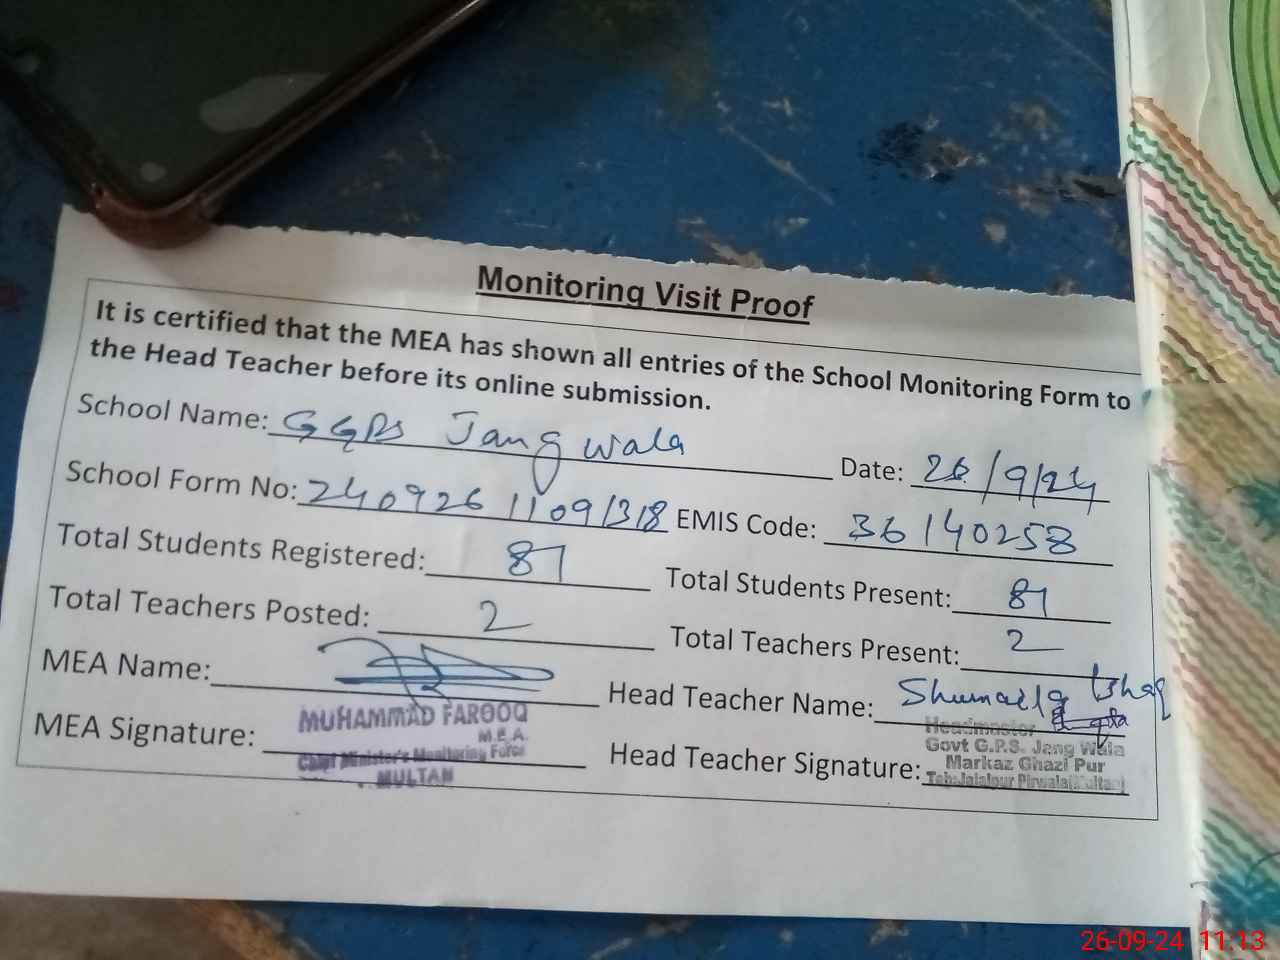 Monitoring Visit Proof
It is certified that the MEA has shown all entries of the School Monitoring Form to
the Head Teacher before its online submission.
School Name: GGPS Jangwala Date: 26/9/24
School Form No: 24092611091318 EMIS Code: 36140258
Total Students Registered: 87 Total Students Present: 81
Total Teachers Posted: 2 Total Teachers Present: 2
MEA Name: Head Teacher Name: Shumaila Ishaq
MEA Signature: Head Teacher Signature:
MUHAMMAD FAROOQ
M.E.A.
Chief Minister's Monitoring Force
MULTAN
Headmaster
Govt G.P.S. Jang Wala
Markaz Ghazi Pur
Teh:Jalalpur Pirwala(Multan)
26-09-24 11:13